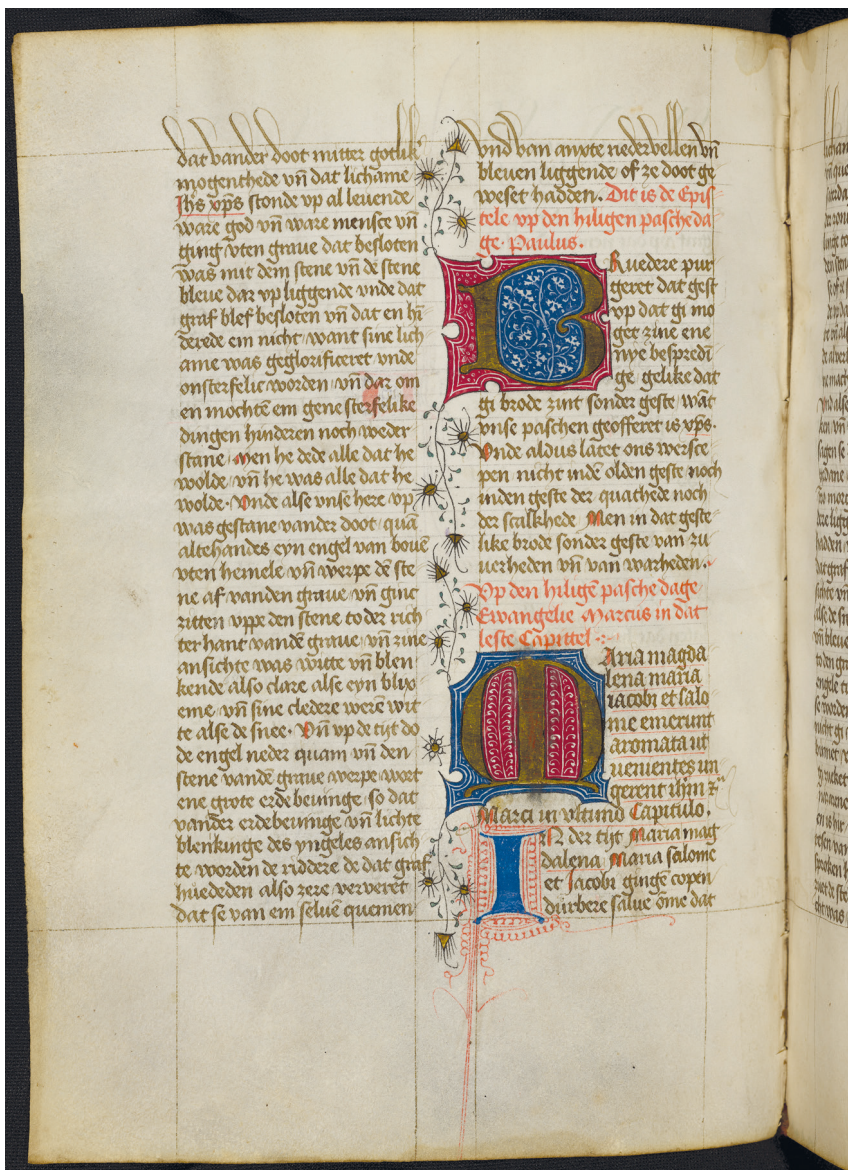 dat vander doot mitter gotlik
mogenthede vn̄ dat lichame
Ihs xp̄s stonde vp al leuende
ware god vn̄ ware mensce vn̄
ging vten graue dat besloten
was mit dem stene vn̄ dē stene
bleue dar vp liggende vnde dat
graf blef besloten vn̄ dat en hī
derede em nicht want sine lich
ame was geglorificeret vnde
onsterfelic worden vn̄ dar om
en mochtē em gene sterfelike
dingen hinderen noch weder
stane Men he dede alle dat he
wolde vn̄ he was alle dat he
wolde. Vnde alse vnse here vp
was gestane vander doot quā
altehandes eyn engel van bouē
vten hemele vn̄ werpe dē ste
ne af vanden graue vn̄ ginc
zitten vppe den stene to der rich
ter hant vandē graue vn̄ zine
ansichte was witte vn̄ blen
kende also clare alse eyn blix
eme vn̄ sine cledere werē wit
te alse de snee. Vn̄ vp de tijt do
de engel neder quam vn̄ den
stene vandē graue werpe wort
ene grote erdebeuinge so dat
vander erdebeuinge vn̄ lichte
blenkinge des yngeles ansich
te worden de riddere de dat graf
huededen also zere ververet
dat se van em seluē quemen
vnd van anxte nedervellen vn̄
bleuen liggende of ze doot ge
weset hadden. Dit is de Epis
tele vp den hiligen pascheda
ge. Paulus.
BRuedere pur
geret dat gest
vp dat gi mo
get zine ene
nye bespredī
ge gelike dat
gi brode zint sonder geste wāt
vnse paschen geofferet is xp̄s.
Vnde aldus latet ons wersce
pen nicht indē olden geste noch
inden geste der quathede noch
der scalkhede Men in dat geste
like brode sonder geste van zu
uerheden vn̄ van warheden.
Vp den hiligē pasche dage
Ewangelie Marcus in dat
leste Capittel
MAria magda
lena maria
iacobi et salo
me emerunt
aromata ut
uenientes un
gerent ihm̄ zc
Marci in vltimo Capitulo.
IN der tijt Maria mag
dalena Maria salome
et Jacobi gingē copen
dūrbere salue ōme dat